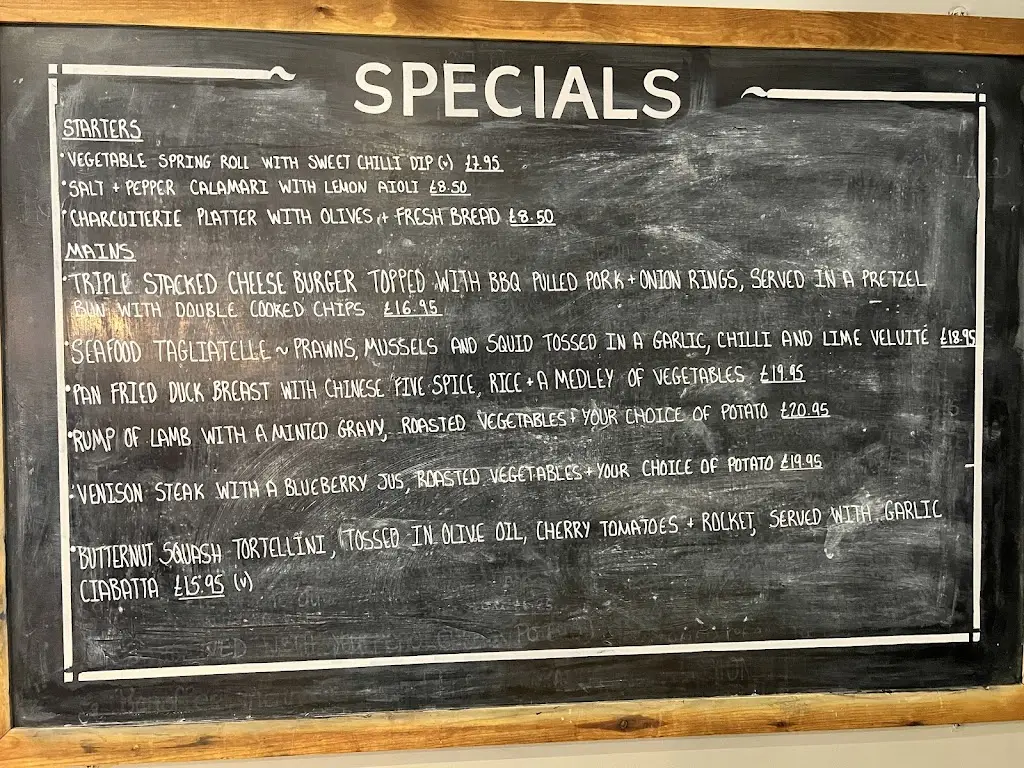 SPECIALS
STARTERS
• VEGETABLE SPRING ROLL WITH SWEET CHILLI DIP (v) £7.95
• SALT + PEPPER CALAMARI WITH LEMON AIOLI £8.50
• CHARCUITERIE PLATTER WITH OLIVES + FRESH BREAD £8.50
MAINS
• TRIPLE STACKED CHEESE BURGER TOPPED WITH BBQ PULLED PORK + ONION RINGS, SERVED IN A PRETZEL
BUN WITH DOUBLE COOKED CHIPS £16.95
• SEAFOOD TAGLIATELLE ~ PRAWNS, MUSSELS AND SQUID TOSSED IN A GARLIC, CHILLI AND LIME VELUITÉ £18.95
• PAN FRIED DUCK BREAST WITH CHINESE FIVE SPICE, RICE + A MEDLEY OF VEGETABLES £19.95
• RUMP OF LAMB WITH A MINTED GRAVY, ROASTED VEGETABLES + YOUR CHOICE OF POTATO £20.95
• VENISON STEAK WITH A BLUEBERRY JUS, ROASTED VEGETABLES + YOUR CHOICE OF POTATO £19.95
• BUTTERNUT SQUASH TORTELLINI, TOSSED IN OLIVE OIL, CHERRY TOMATOES + ROCKET, SERVED WITH GARLIC
CIABATTA £15.95 (v)